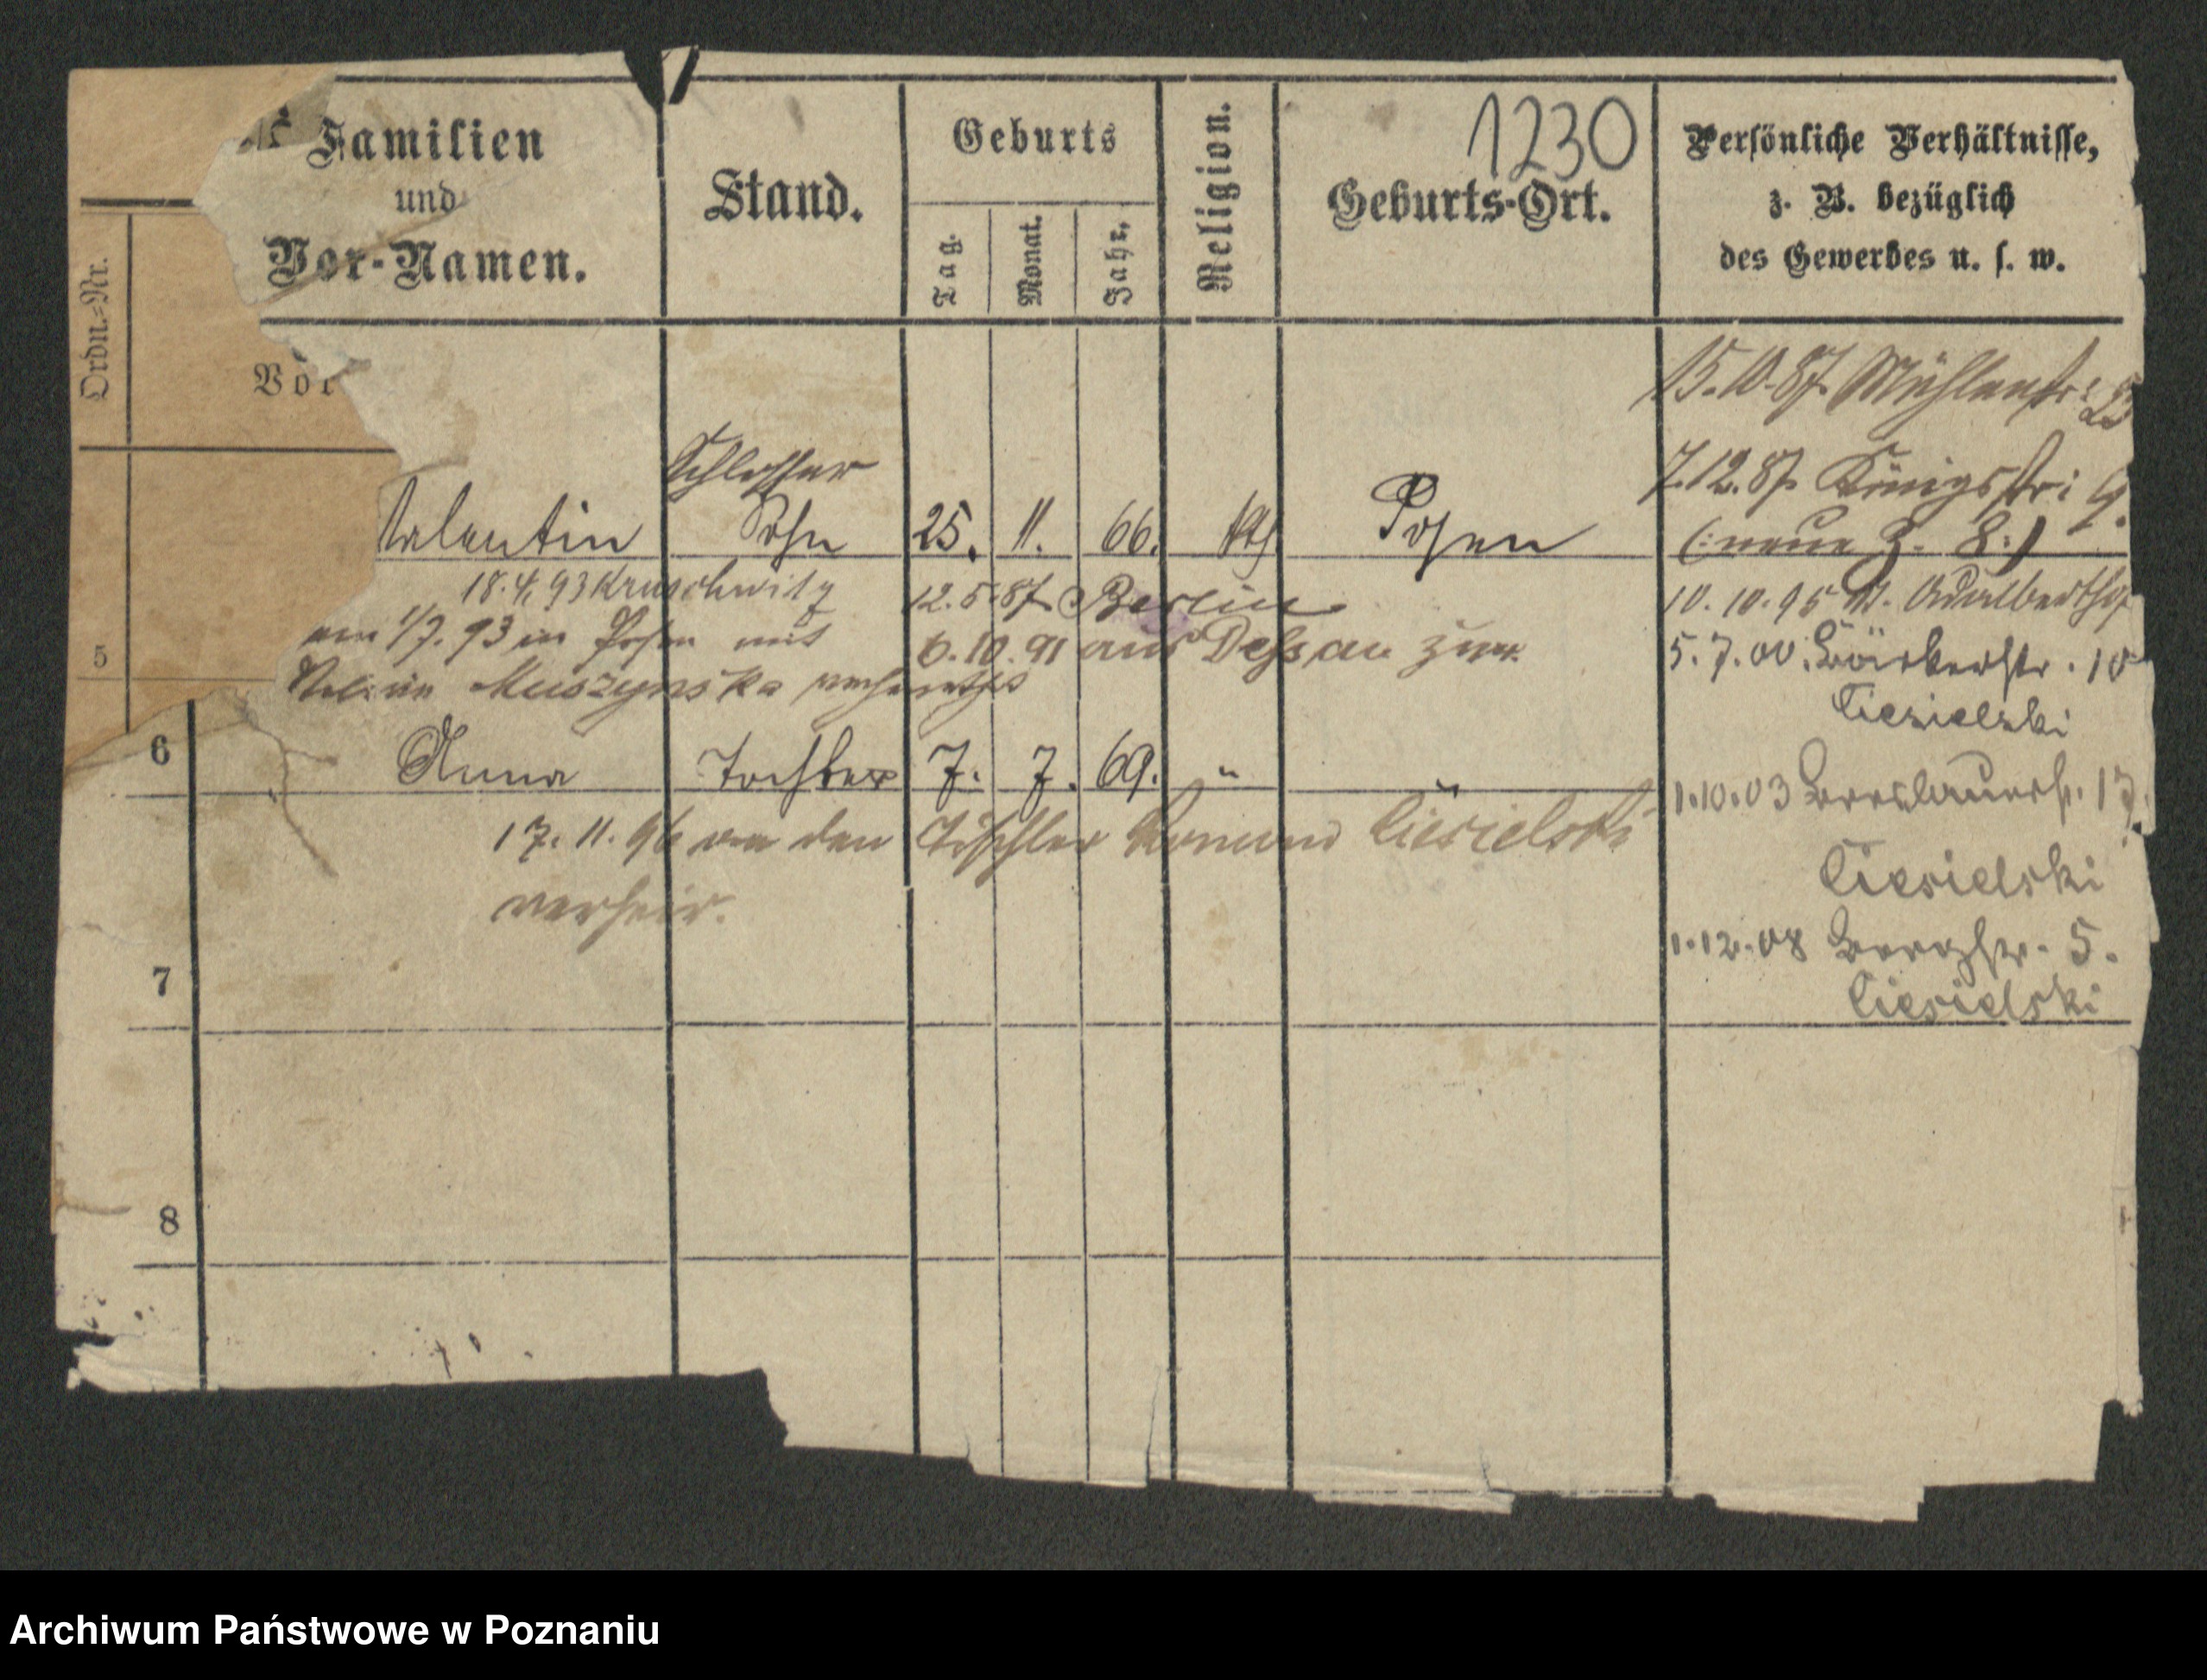 1230
Familien
und
Vor-Namen.
Stand.
Geburts
Tag.
Monat.
Jahr.
Religion.
Geburts-Ort.
Persönliche Verhältnisse,
z. B. bezüglich
des Gewerbes u. s. w.
Ordn.=Nr.
Vor
15.10.87 Mühlenstr: 23
7.12.87 Königsstr: 9.
(: neue 8 :)
Schlosser
Valentin Sohn 25. 11. 66. kth Posen
18.4.93 Kruschwitz
12.5.87 Berlin
10.10.95 St. Adalbertstr
5
am 1/7.93 in Posen mit
6.10.91 aus Dessau zur.
5.7.00. Bäckerstr. 10
Muszynska verheirathet
Ciesielski
6 Anna Tochter 7. 7. 69. " "
1.10.03 17.
17.11.96 an den Tischler Roman Ciesielski
verheir.
Ciesielski
1.12.08 Bergstr. 5.
Ciesielski
7
8
Archiwum Państwowe w Poznaniu